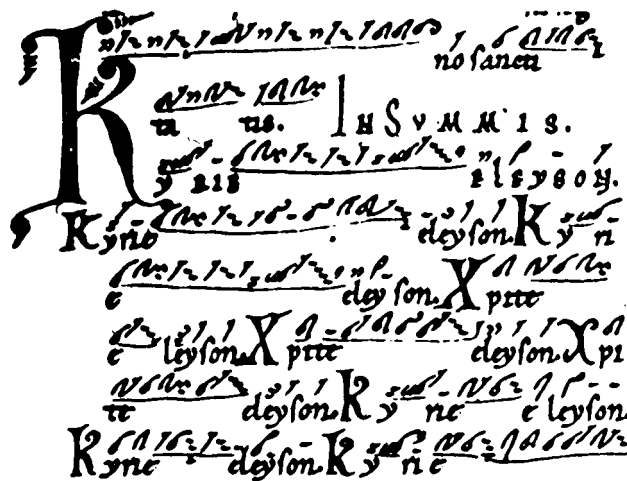 no sancti
ta tis. IN SVMMIS.
K y RIE ELEYSON.
Kyrie eleyson. Ky ri
e eleyson. Xpiste
e leyson. Xpiste eleyson. Xpi
te eleyson. Ky rie e leyson
Kyrie eleyson. Ky ri e